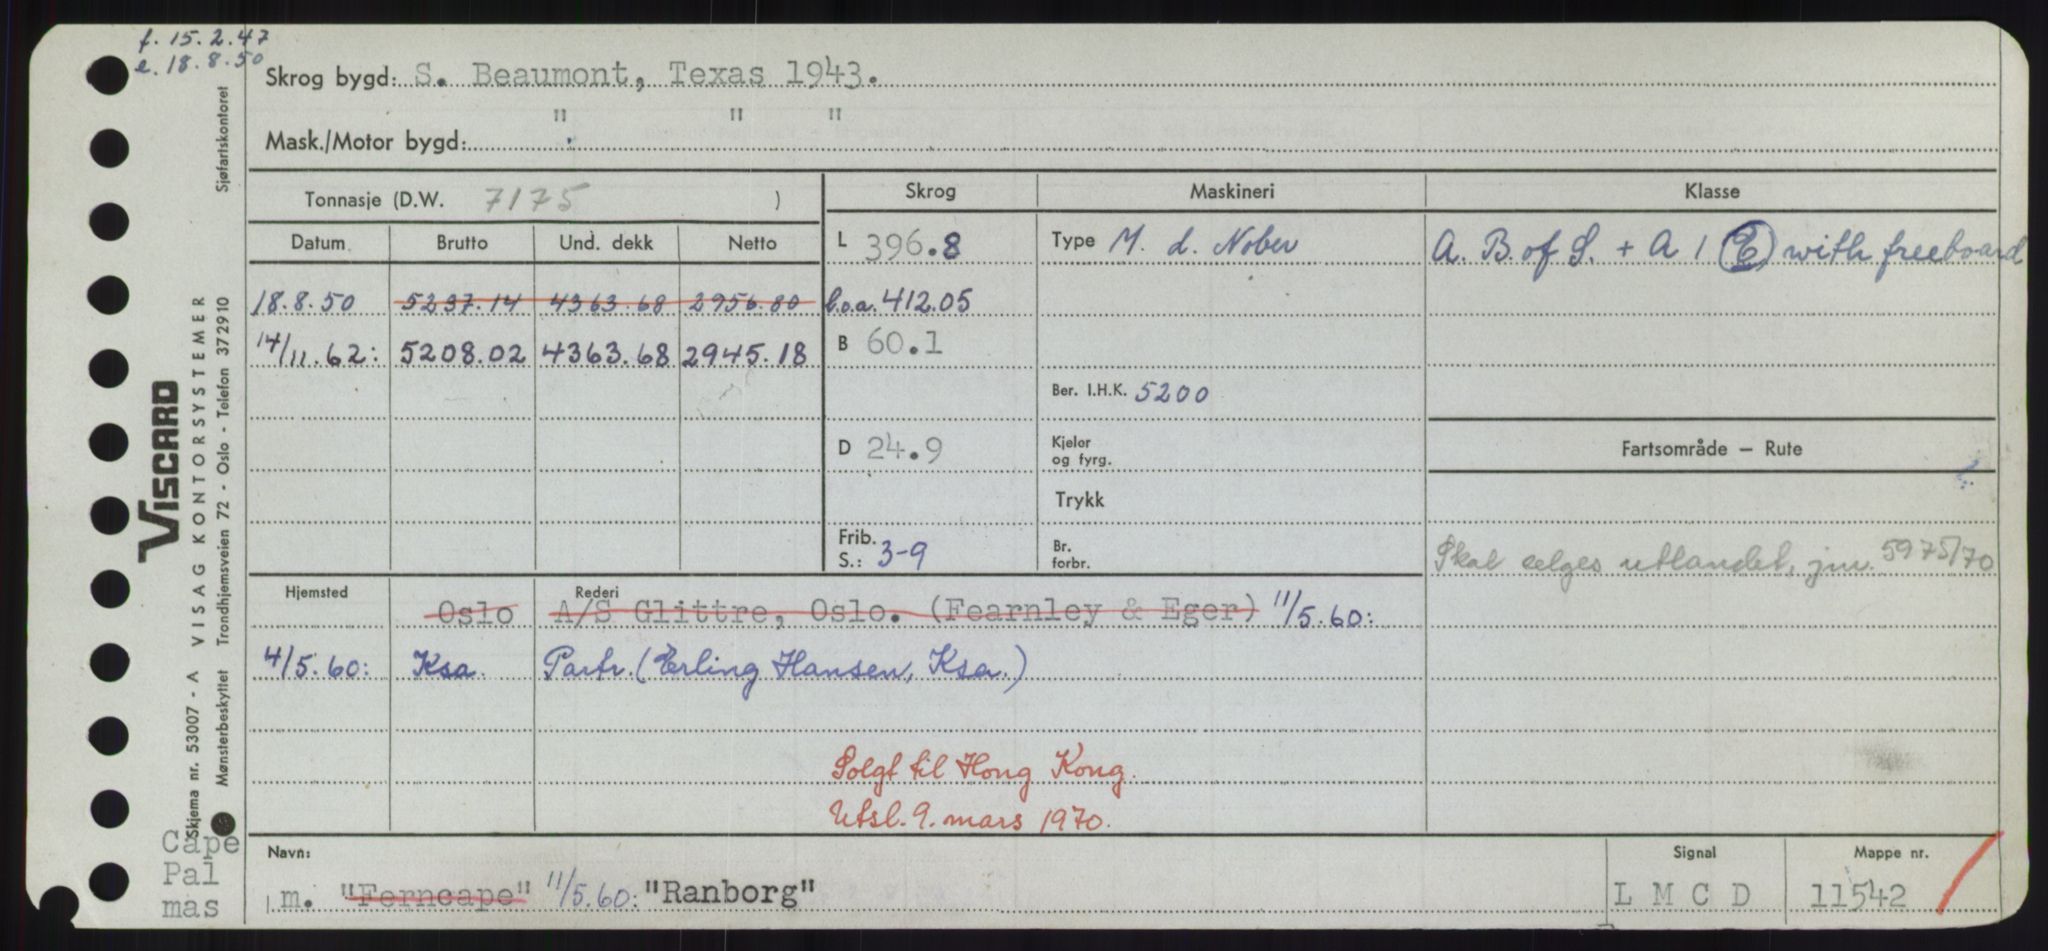 f. 15.2.47
e. 18.8.50
Skrog bygd: S. Beaumont, Texas 1943.
Mask./Motor bygd: " " "
Tonnasje (D.W. 7175 )
Skrog
Maskineri
Klasse
Datum
Brutto
Und. dekk
Netto
L 396.8
Type M. d. Nober
A. B. of S. + A 1 (E) with freeboard
18.8.50 5237.14 4363.68 2956.80
l.o.a. 412.05
14/11.62: 5208.02 4363.68 2945.18
B 60.1
Ber. I.H.K. 5200
D 24.9
Kjeler
og fyrg.
Fartsområde – Rute
Trykk
Frib.
S.: 3-9
Br.
forbr.
Skal selges utlandet, jnr. 5975/70
Hjemsted
Rederi
Oslo A/S Glittre, Oslo. (Fearnley & Eger) 11/5.60:
4/5.60: Ksa. Partr. (Erling Hansen, Ksa.)
Solgt til Hong Kong.
Utsl. 9. mars 1970.
Navn:
Signal
Mappe nr.
m. "Ferncape" 11/5.60: "Ranborg"
L M C D
11542
Cape
Pal
mas
VISCARD
VISAG KONTORSYSTEMER
Skjema nr. 53007 - A
Mønsterbeskyttet
Trondhjemsveien 72 - Oslo - Telefon 372910
Sjøfartskontoret